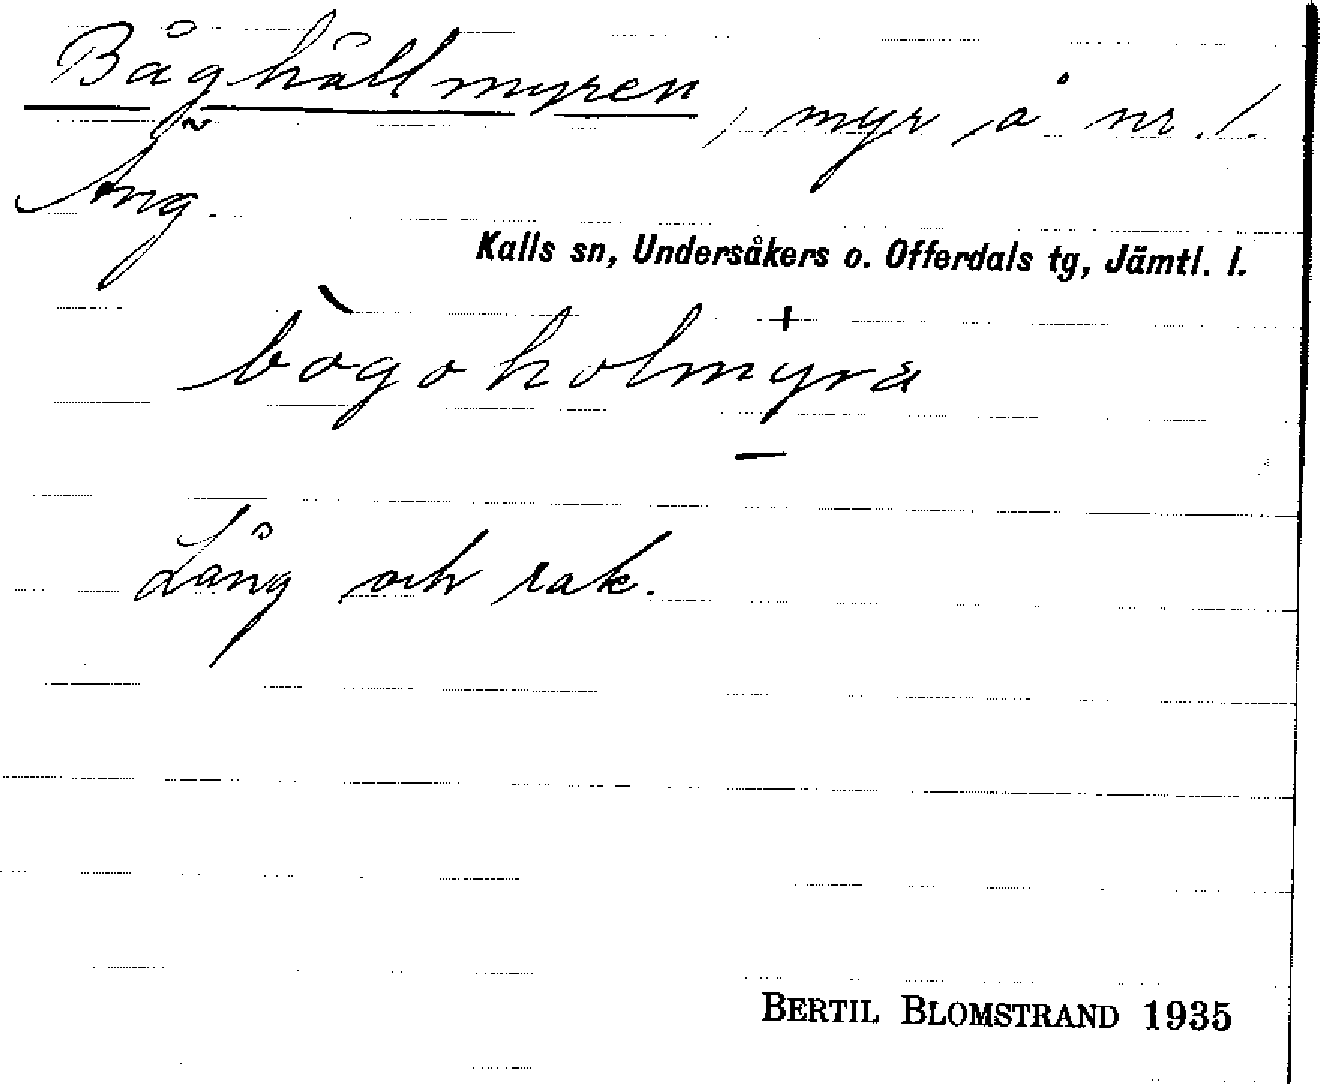 Båghållmyren, myr å nr. 1.
Äng.
Kalls sn, Undersåkers o. Offerdals tg, Jämtl. l.
bògoholmyra
Lång och rak.
BERTIL BLOMSTRAND 1935